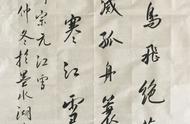 鳥飛絶
滅孤舟蓑
寒江雪
宗元江雪
仲冬於墨水湖